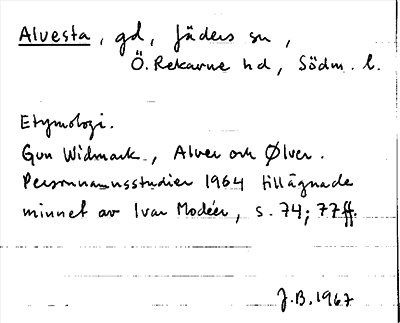 Alvesta, gd, Jäders sn,
Ö. Rekarne hd, Södm. l.
Etymologi.
Gun Widmark, Alver och Ølver.
Personnamnsstudier 1964 tillägnade
minnet av Ivar Modéer, s. 74; 77ff.
J.B. 1967